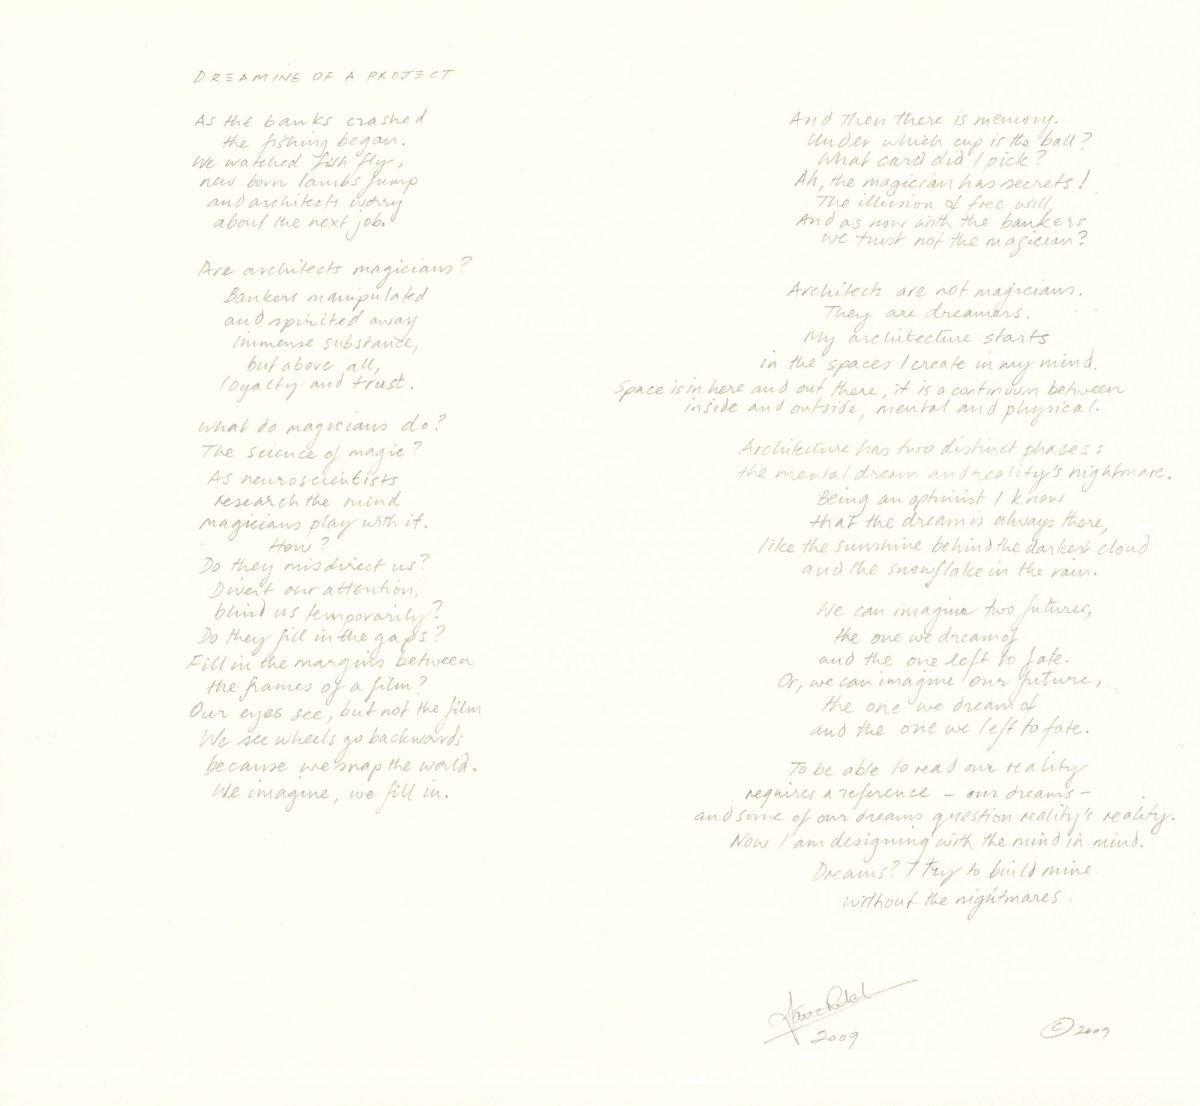 DREAMING OF A PROJECT
As the banks crashed
the fishing began.
We watched fish fly,
new born lambs jump
and architects worry
about the next job.
Are architects magicians?
Bankers manipulated
and spirited away
immense substance,
but above all,
loyalty and trust.
What do magicians do?
The science of magic?
As neuroscientists
research the mind
magicians play with it.
How?
Do they misdirect us?
Divert our attention,
blind us temporarily?
Do they fill in the gaps?
Fill in the margins between
the frames of a film?
Our eyes see, but not the film
We see wheels go backwards
because we snap the world.
We imagine, we fill in.
And then there is memory.
Under which cup is the ball?
What card did I pick?
Ah, the magician has secrets!
The illusion of free will
And as now with the bankers
we trust not the magician?
Architects are not magicians.
They are dreamers.
My architecture starts
in the spaces I create in my mind.
Space is in here and out there, it is a continuum between
inside and outside, mental and physical.
Architecture has two distinct phases:
the mental dream and reality's nightmare.
Being an optimist I know
that the dream is always there,
like the sunshine behind the darkest cloud
and the snowflake in the rain.
We can imagine two futures,
the one we dream of
and the one left to fate.
Or, we can imagine our future,
the one we dream of
and the one we left to fate.
To be able to read our reality
requires a reference – our dreams –
and some of our dreams question reality's reality.
Now I am designing with the mind in mind.
Dreams? I try to build mine
without the nightmares.
2009
© 2009